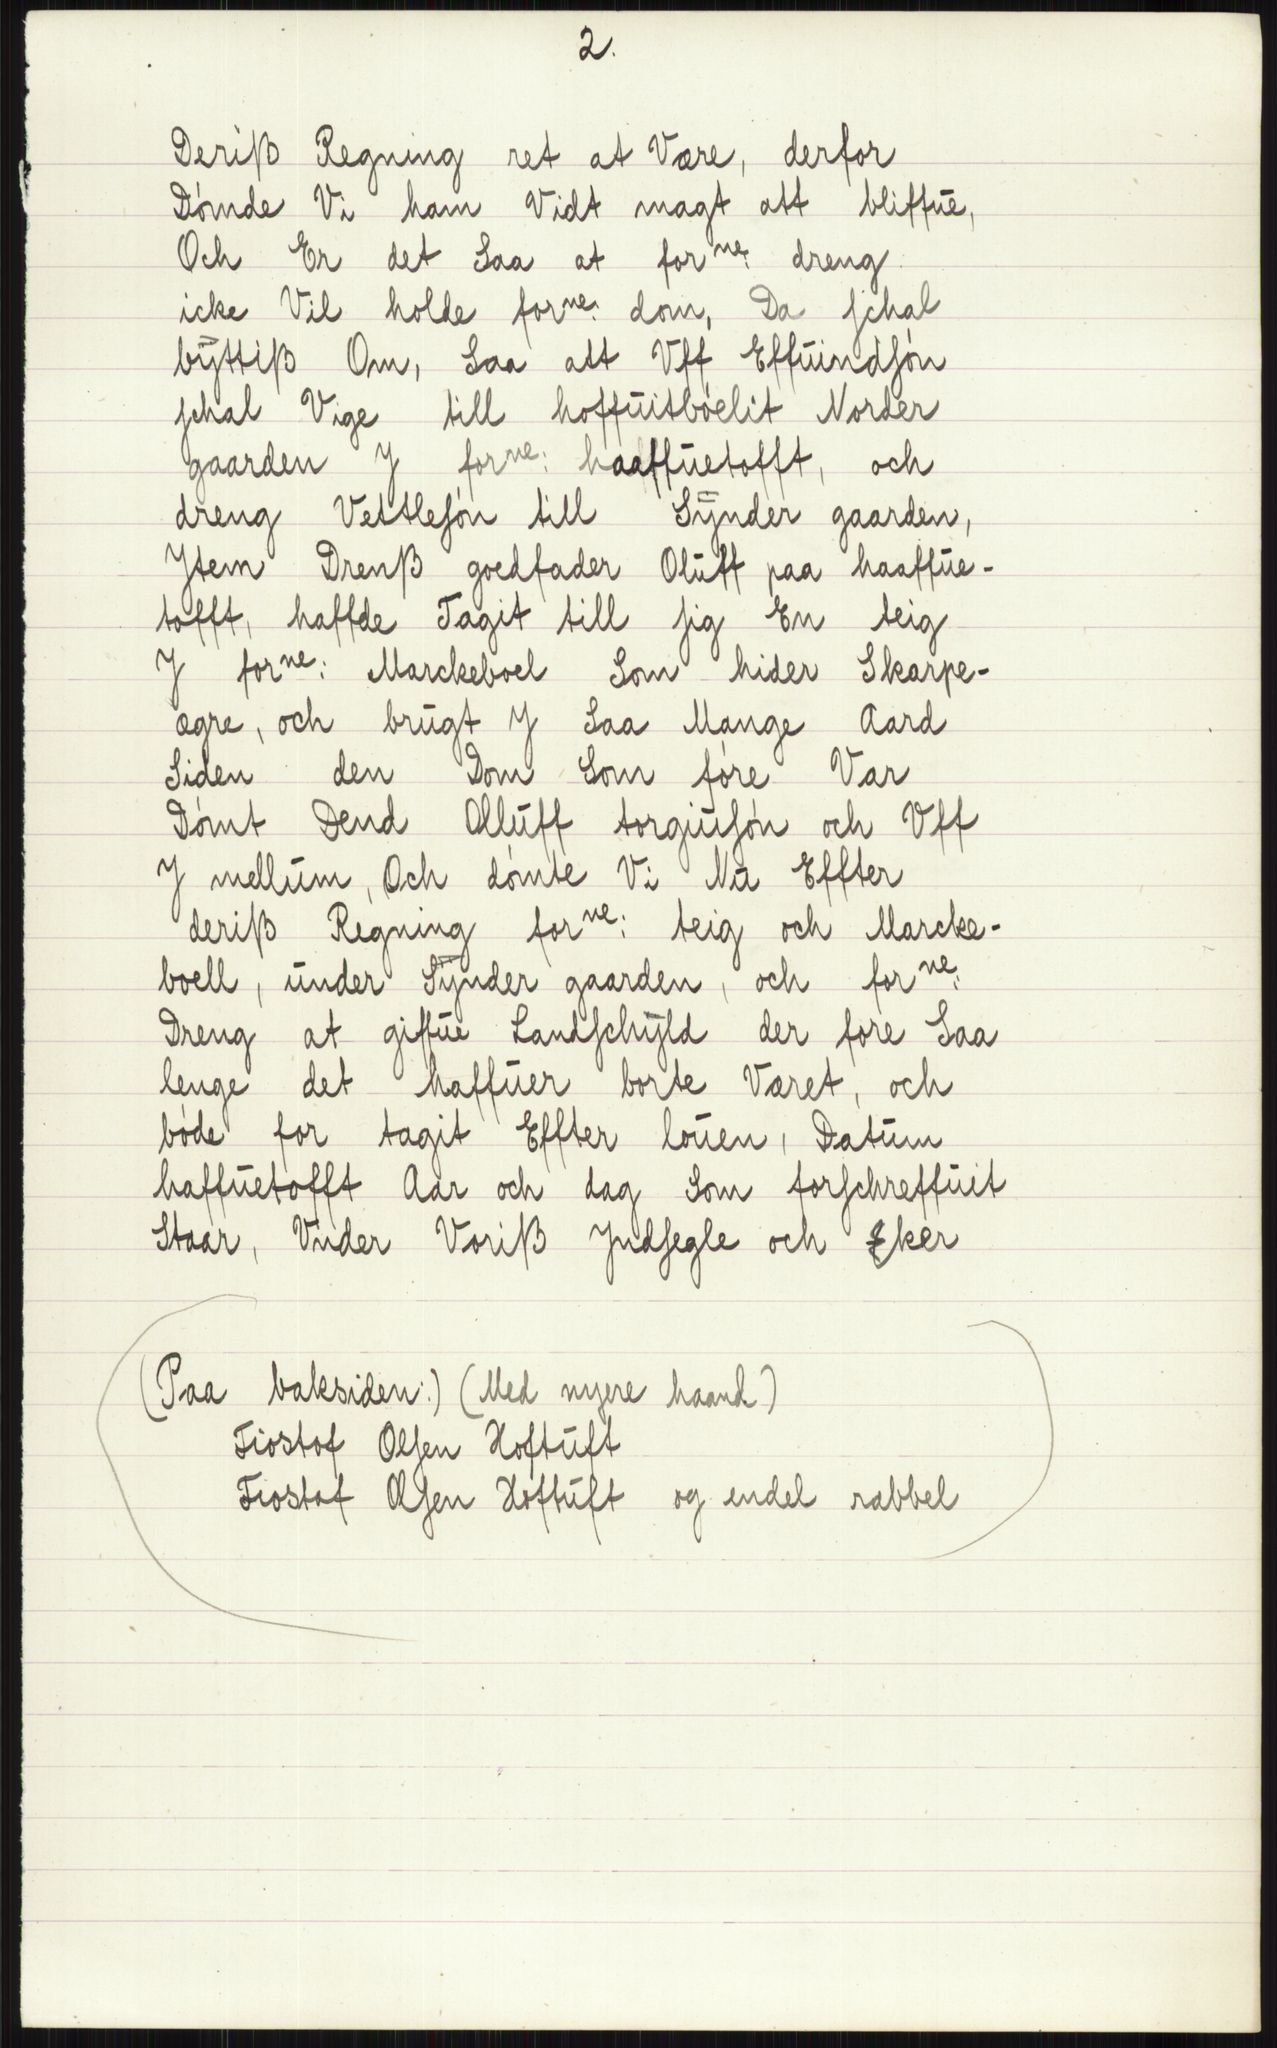 2.
Deriß Regning ret at Være, derfor
Dómde Vi ham Vidt magt att bliffue,
Och Er det Saa at forne: dreng
icke Vil holde forne: dom, Da schal
byttiß Om, Saa att Uff Effuindsón
schal Vige till hoffuitbóelit Norder
gaarden J forne: haaffuetofft, och
dreng Vettlesón till Synder gaarden,
Jtem Drenß goedfader Oluff paa haaffue-
tofft, haffde Tagit till sig En teig
J forne: Marckeboel Som hider Skarpe-
ægre, och brugt J Saa Mange Aard
Siden den Dom Som fóre Var
Dómt Dend Olluff torgiusón och Uff
J mellum, Och dómte Vi Nu Effter
deriß Regning forne: teig och Marcke-
boell, under Synder gaarden, och forne:
Dreng at giffue Landschyld der fore Saa
lenge det haffuer borte Været, och
bóde for tagit Effter louen, Datum
haffuetofft Aar och dag Som forschreffuit
Staar, Vnder Voriß Jndsegle och Eker
(Paa baksiden:) (Med nyere haand)
Tiostof Olsen Hoftuft
Tiostof Olsen Hóftuft og endel rabbel